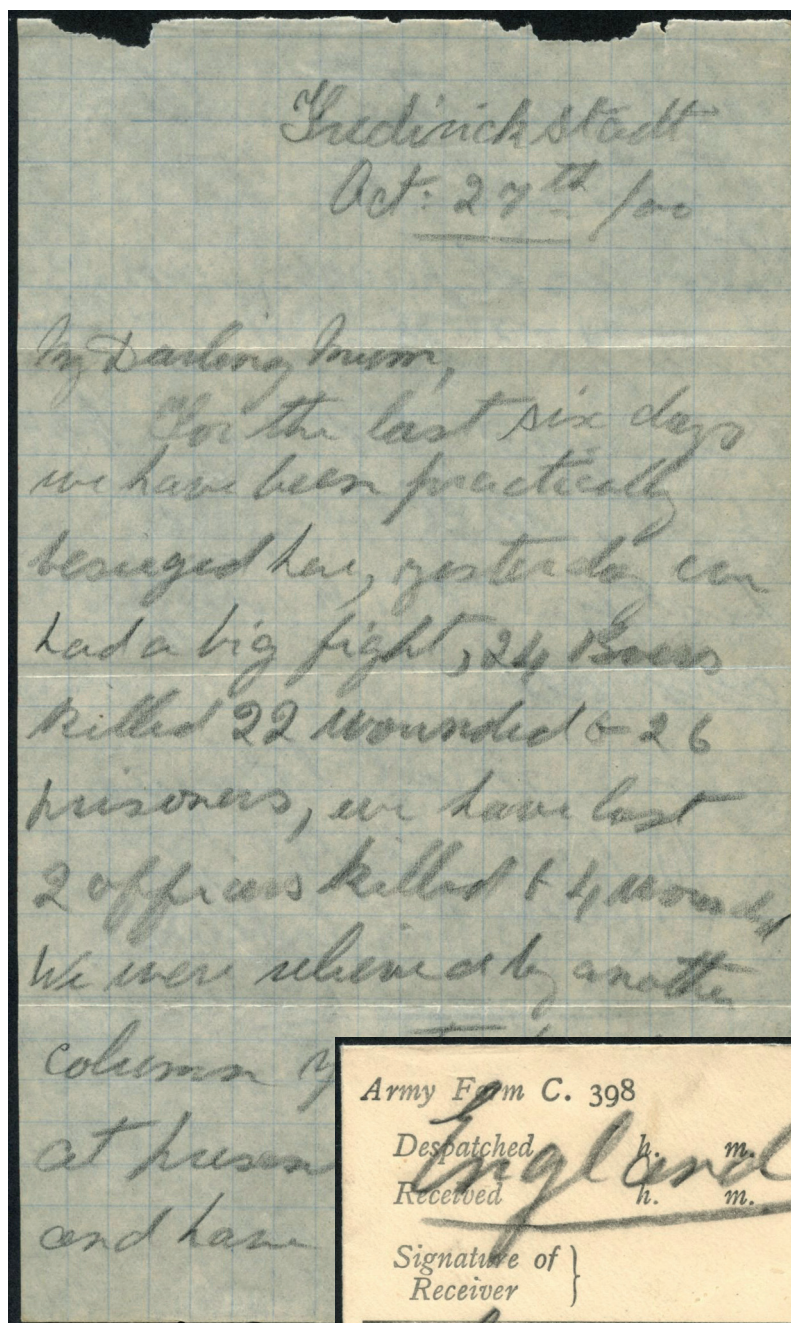 Fredirickstadt
Oct: 27th /00
My Darling Mum,
For the last six days
we have been practically
besieged here, yesterday we
had a big fight, 24 Boers
killed 22 wounded & 26
prisoners, we have lost
2 officers killed & 4 wounded
We were relieved by another
column
at presen
and have
Army Form C. 398
England
Despatched h. m.
Received h. m.
Signature of
Receiver